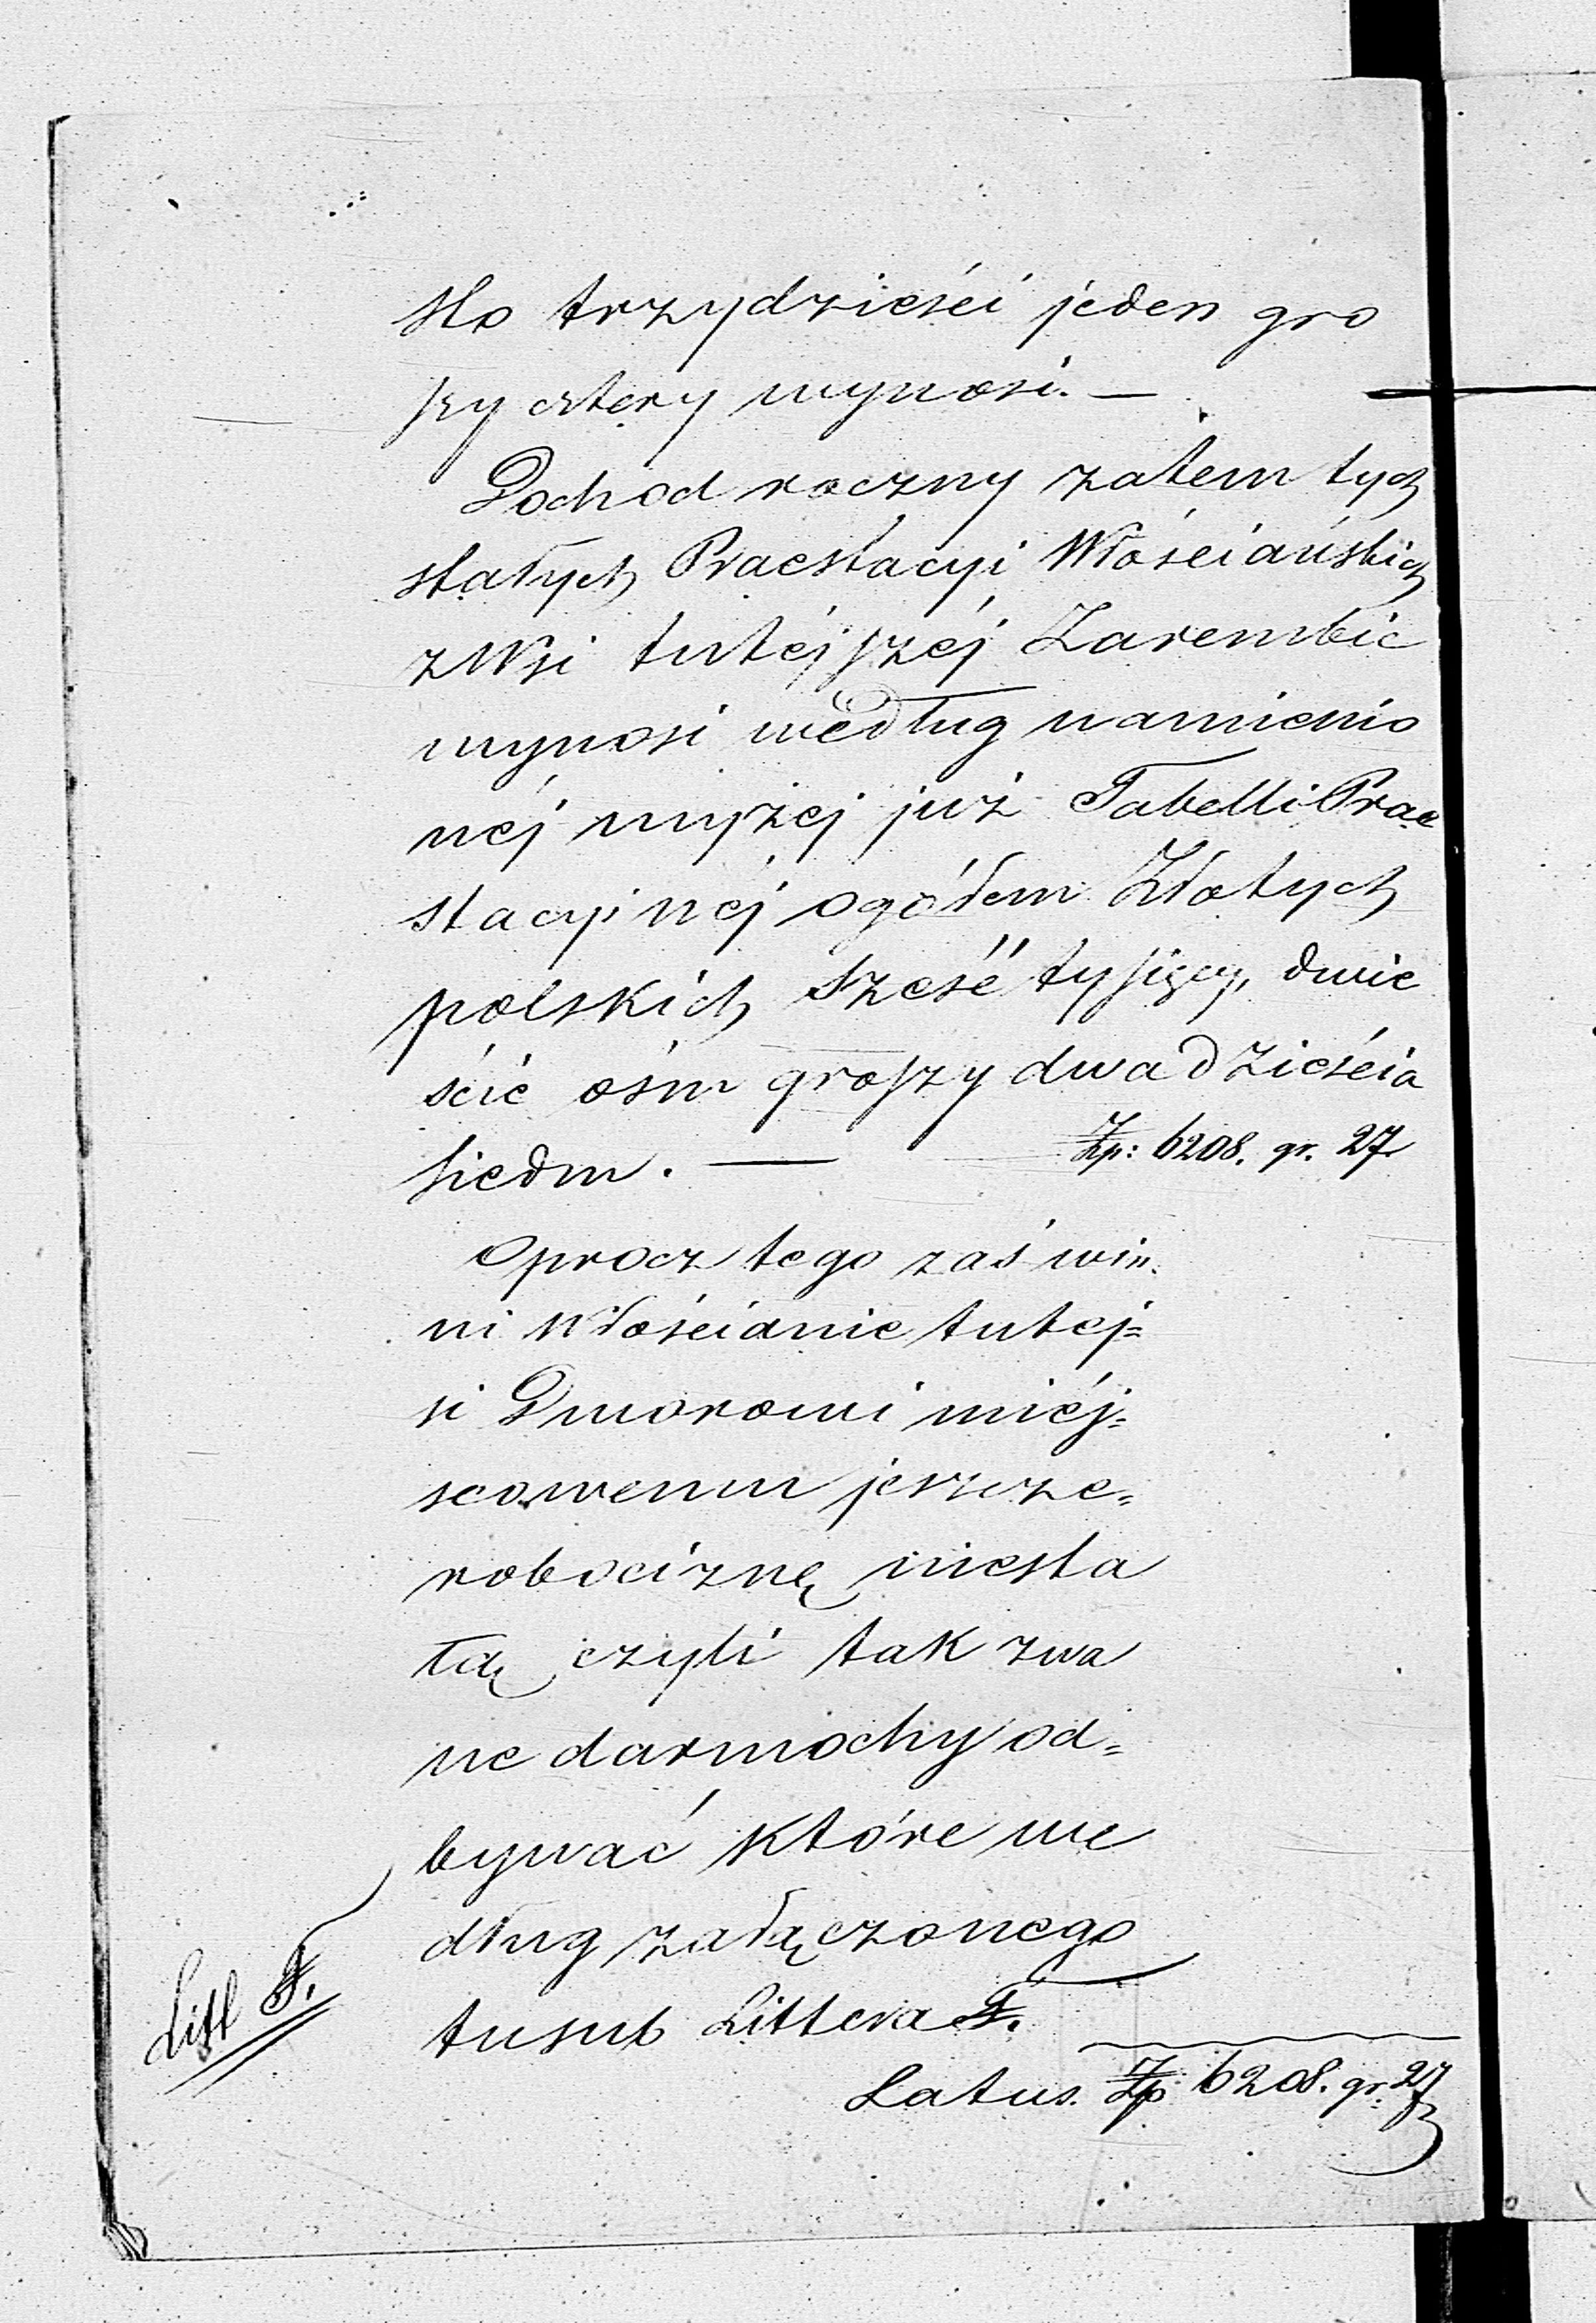 sto trzydzieści jeden gro
szy cztery wynosi. —
Dochod roczny zatem tych
stałych Praestacyi Włościańskich
z Wsi tutéjszéj Zarembic
wynosi według namienio
néj wyżej już Tabelli Prae
stacyjnéj ogółem Złotych
polskich sześć tysięcy, dwie
ście ośm groszy dwadzieścia
siedm. — Zp: 6208. gr. 27
Oprocz tego zaś win
ni Włościanie tutej=
si Dworowi miéj=
scowemu jeszcze=
robociznę niesta
łą czyli tak zwa
ne darmochy od=
bywać które we
dług załączonego
Litt F.
tusub Littera F.
Latus. Zp 6208. gr. 27